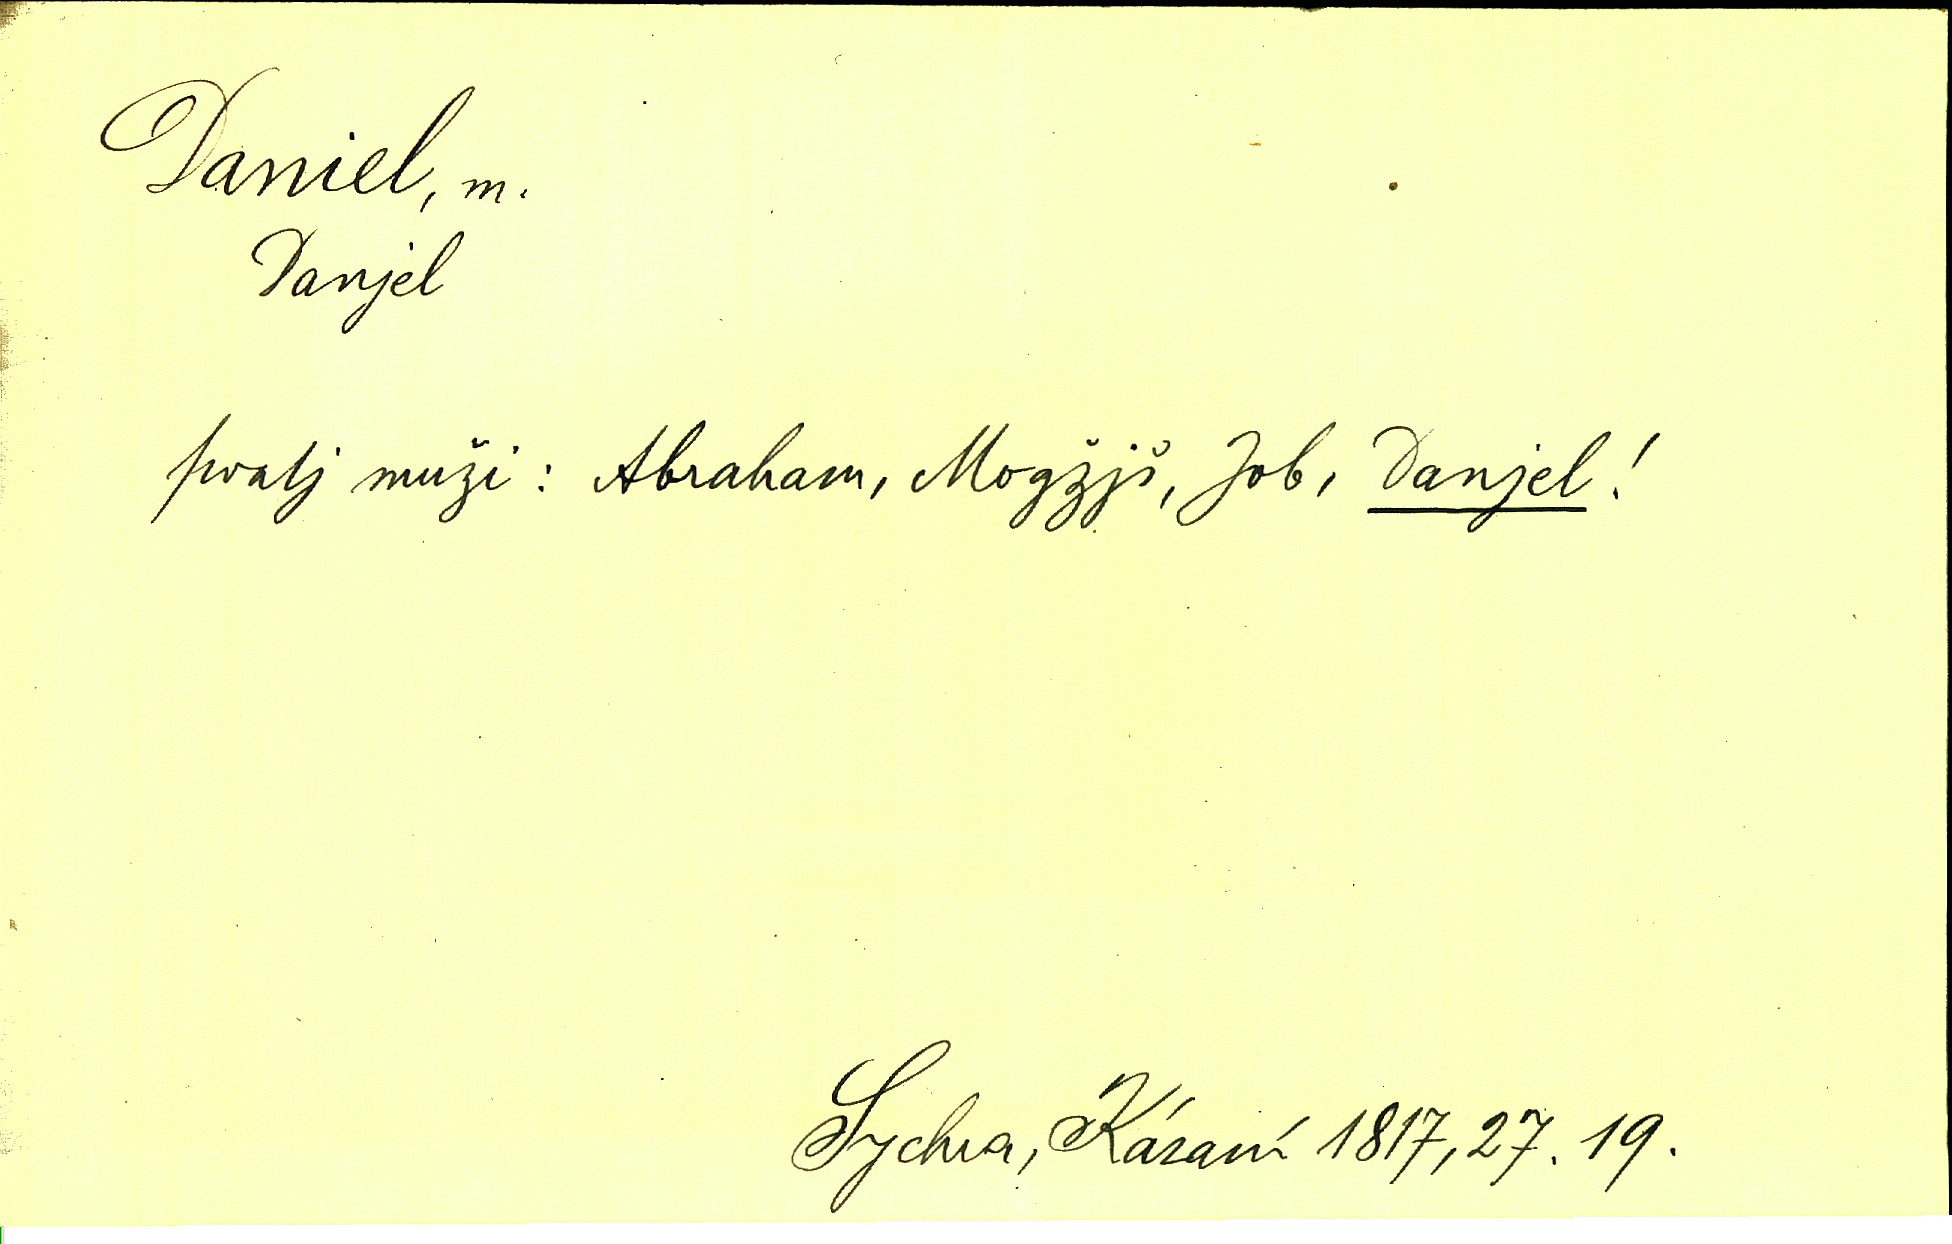 Daniel, m.
Danjel
swatj muži: Abraham, Mogžjš, Job, Danjel!
Sychra, Kázaní 1817, 27. 19.